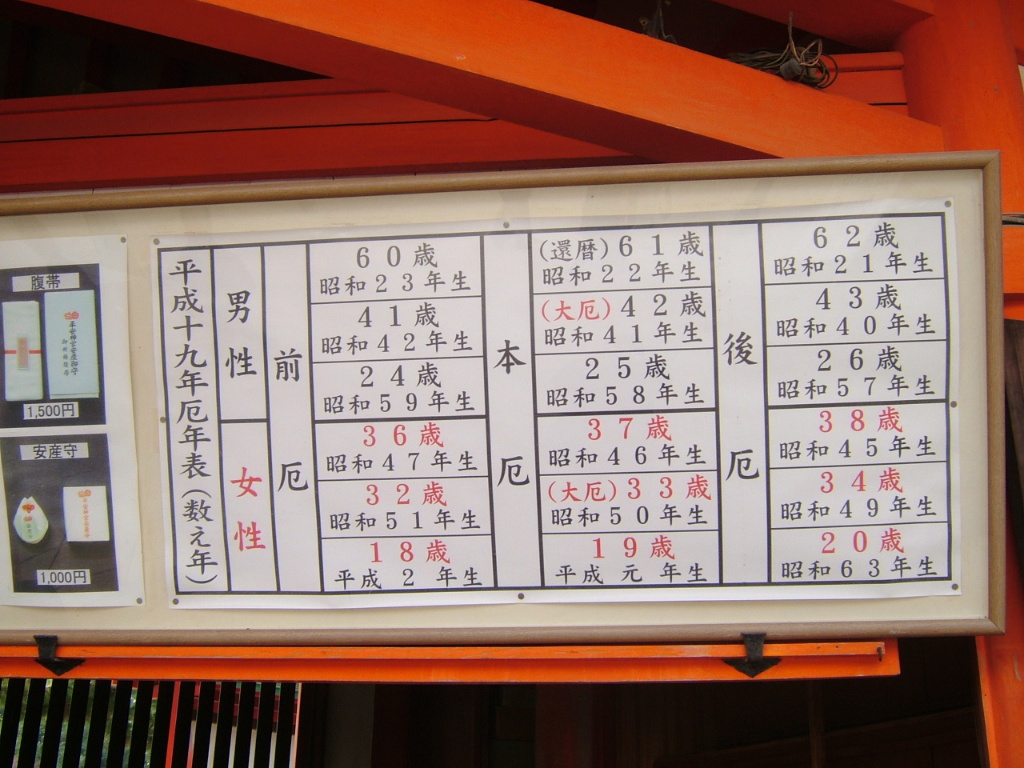 腹帯
平安神宮安産御守
1,500円
安産守
1,000円
平成十九年厄年表(数え年)
男性
女性
前厄
60歳
昭和23年生
41歳
昭和42年生
24歳
昭和59年生
36歳
昭和47年生
32歳
昭和51年生
18歳
平成 2年生
本厄
(還暦)61歳
昭和22年生
(大厄)42歳
昭和41年生
25歳
昭和58年生
37歳
昭和46年生
(大厄)33歳
昭和50年生
19歳
平成 元 年生
後厄
62歳
昭和21年生
43歳
昭和40年生
26歳
昭和57年生
38歳
昭和45年生
34歳
昭和49年生
20歳
昭和63年生